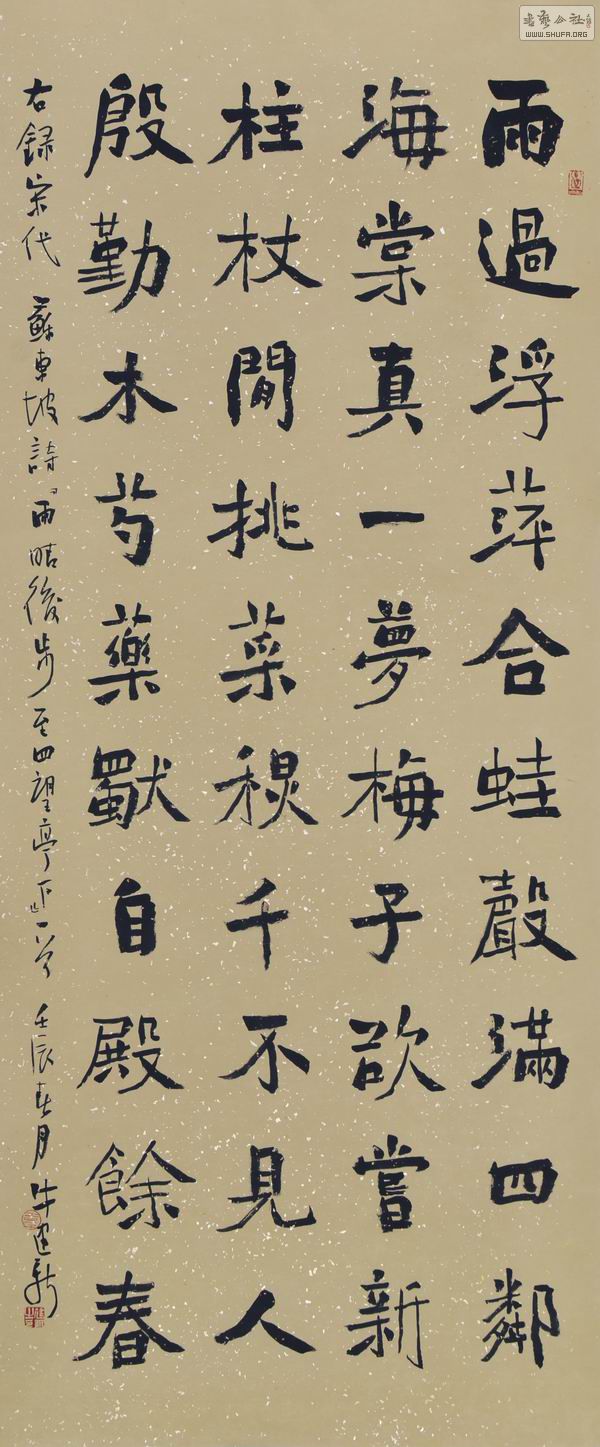 書藝公社
WWW.SHUFA.ORG
雨過浮萍合蛙聲滿四鄰
海棠真一夢梅子欲嘗新
柱杖閒挑菜秋千不見人
殷勤木芍藥獨自殿餘春
右録宋代 蘇東坡詩雨晴後步至四望亭一首 壬辰春月 牛建新